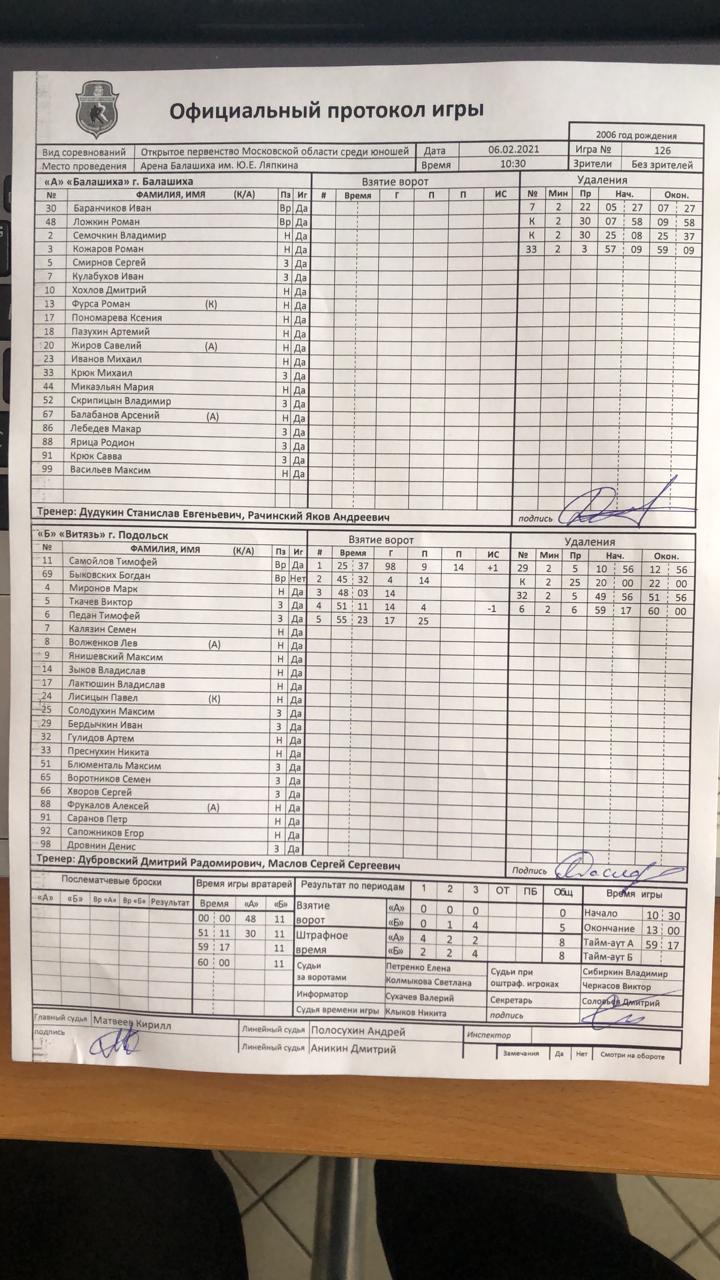 Официальный протокол игры
2006 год рождения
Вид соревнований Открытое первенство Московской области среди юношей Дата 06.02.2021 Игра № 126
Место проведения Арена Балашиха им. Ю.Е. Ляпкина Время 10:30 Зрители Без зрителей
«А» «Балашиха» г. Балашиха Взятие ворот Удаления
№ ФАМИЛИЯ, ИМЯ (К/А) Пз Иг # Время Г П П ИС № Мин Пр Нач. Окон.
30 Баранчиков Иван Вр Да 7 2 22 05 27 07 27
48 Ложкин Роман Вр Да К 2 30 07 58 09 58
2 Семочкин Владимир Н Да К 2 30 25 08 25 37
3 Кожаров Роман Н Да 33 2 3 57 09 59 09
5 Смирнов Сергей З Да
7 Кулабухов Иван З Да
10 Хохлов Дмитрий Н Да
13 Фурса Роман (К) Н Да
17 Пономарева Ксения Н Да
18 Пазухин Артемий Н Да
20 Жиров Савелий (А) Н Да
23 Иванов Михаил Н Да
33 Крюк Михаил З Да
44 Микаэльян Мария Н Да
52 Скрипицын Владимир З Да
67 Балабанов Арсений (А) Н Да
86 Лебедев Макар З Да
88 Ярица Родион З Да
91 Крюк Савва З Да
99 Васильев Максим Н Да
Тренер: Дудукин Станислав Евгеньевич, Рачинский Яков Андреевич подпись
«Б» «Витязь» г. Подольск Взятие ворот Удаления
№ ФАМИЛИЯ, ИМЯ (К/А) Пз Иг # Время Г П П ИС № Мин Пр Нач. Окон.
11 Самойлов Тимофей Вр Да 1 25 37 98 9 14 +1 29 2 5 10 56 12 56
69 Быковских Богдан Вр Нет 2 45 32 4 14 К 2 25 20 00 22 00
4 Миронов Марк Н Да 3 48 03 14 32 2 5 49 56 51 56
5 Ткачев Виктор З Да 4 51 11 14 4 -1 6 2 6 59 17 60 00
6 Педан Тимофей З Да 5 55 23 17 25
7 Калязин Семен Н Да
8 Волженков Лев (А) Н Да
9 Янишевский Максим Н Да
14 Зыков Владислав Н Да
17 Лактюшин Владислав Н Да
24 Лисицын Павел (К) Н Да
25 Солодухин Максим З Да
29 Бердычкин Иван З Да
32 Гулидов Артем Н Да
33 Преснухин Никита Н Да
51 Блюменталь Максим З Да
65 Воротников Семен З Да
66 Хворов Сергей З Да
88 Фрукалов Алексей (А) Н Да
91 Саранов Петр Н Да
92 Сапожников Егор Н Да
98 Дровнин Денис З Да
Тренер: Дубровский Дмитрий Радомирович, Маслов Сергей Сергеевич Подпись
Послематчевые броски Время игры вратарей Результат по периодам 1 2 3 ОТ ПБ Общ Время игры
«А» «Б» Вр «А» Вр «Б» Результат Время «А» «Б» Взятие ворот «А» 0 0 0 0 Начало 10 30
00 00 48 11 «Б» 0 1 4 5 Окончание 13 00
51 11 30 11 Штрафное время «А» 4 2 2 8 Тайм-аут А 59 17
59 17 11 «Б» 2 2 4 8 Тайм-аут Б
60 00 11 Судьи за воротами Петренко Елена Судьи при оштраф. игроках Сибиркин Владимир
Колмыкова Светлана Черкасов Виктор
Информатор Сухачев Валерий Секретарь Соловьев Дмитрий
Судья времени игры Клыков Никита подпись
Главный судья Матвеев Кирилл Линейный судья Полосухин Андрей Инспектор
подпись Линейный судья Аникин Дмитрий Замечания Да Нет Смотри на обороте